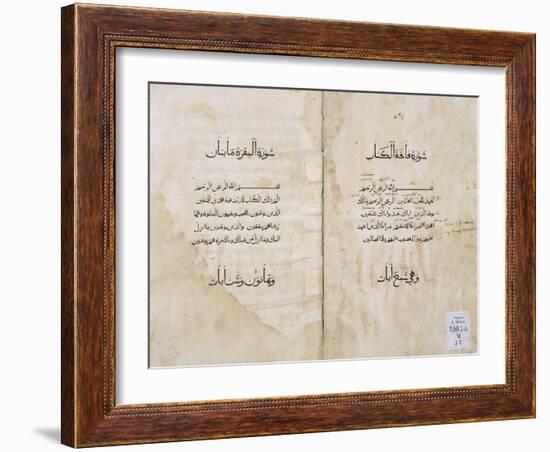 سورة فاتحة الكتاب
بسم الله الرحمن الرحيم
الحمد لله رب العالمين الرحمن الرحيم ملك
يوم الدين اياك نعبد واياك نستعين
اهدنا الصراط المستقيم صراط الذين انعمت
عليهم غير المغضوب عليهم ولا الضالين
وهي سبع آيات
سورة البقرة مائتان
بسم الله الرحمن الرحيم
الم ذلك الكتاب لا ريب فيه هدى للمتقين
الذين يؤمنون بالغيب ويقيمون الصلوة ومما
رزقناهم ينفقون والذين يؤمنون بما انزل
اليك وما انزل من قبلك وبالاخرة هم يوقنون
وثمانون وست آيات